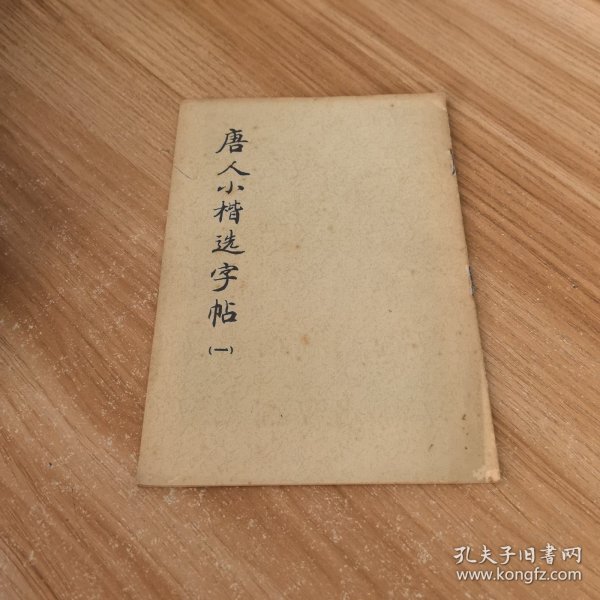 唐人小楷选字帖
（一）
孔夫子旧书网
www.kongfz.com